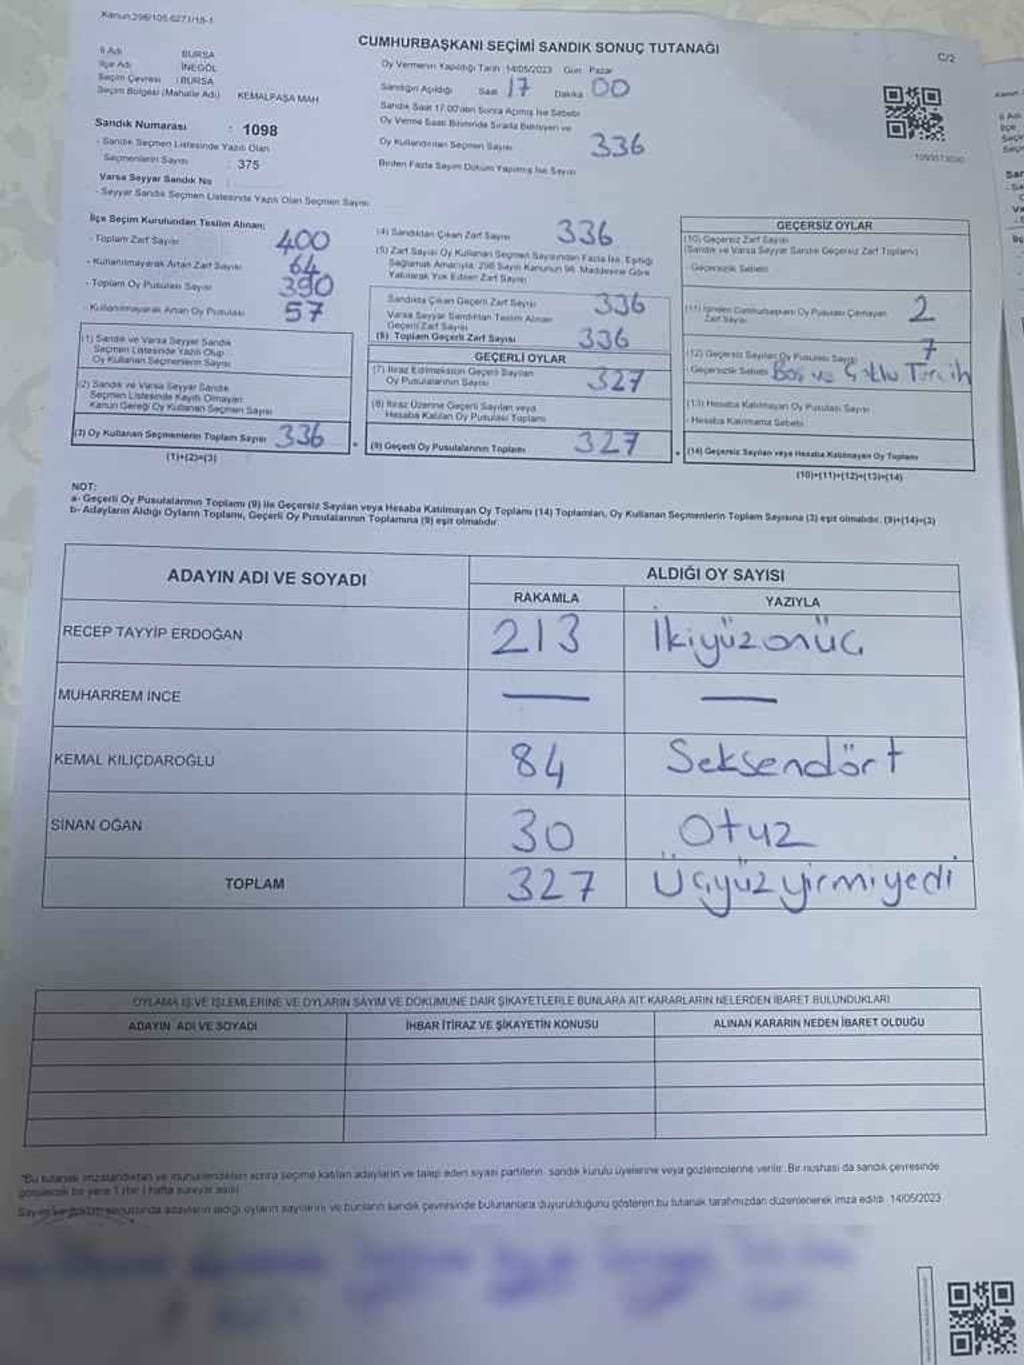 Kanun:298/105.6271/18-1
C/2
CUMHURBAŞKANI SEÇİMİ SANDIK SONUÇ TUTANAĞI
İl Adı BURSA
İlçe Adı İNEGÖL
Seçim Çevresi : BURSA
Seçim Bölgesi (Mahalle Adı) KEMALPAŞA MAH.
Sandık Numarası : 1098
- Sandık Seçmen Listesinde Yazılı Olan
Seçmenlerin Sayısı : 375
Varsa Seyyar Sandık No
- Seyyar Sandık Seçmen Listesinde Yazılı Olan Seçmen Sayısı
Oy Vermenin Yapıldığı Tarih 14/05/2023 Gün Pazar
Sandığın Açıldığı Saat 17 Dakika 00
Sandık Saat 17.00'den Sonra Açılmış İse Sebebi
Oy Verme Saati Bitiminde Sırada Bekleyen ve
Oy Kullandırılan Seçmen Sayısı 336
Birden Fazla Sayım Döküm Yapılmış İse Sayısı
İlçe Seçim Kurulundan Teslim Alınan;
- Toplam Zarf Sayısı 400
- Kullanılmayarak Artan Zarf Sayısı 64
- Toplam Oy Pusulası Sayısı 390
- Kullanılmayarak Artan Oy Pusulası 57
(1) Sandık ve Varsa Seyyar Sandık
Seçmen Listesinde Yazılı Olup
Oy Kullanan Seçmenlerin Sayısı
(2) Sandık ve Varsa Seyyar Sandık
Seçmen Listesinde Kayıtlı Olmayan
Kanun Gereği Oy Kullanan Seçmen Sayısı
(3) Oy Kullanan Seçmenlerin Toplam Sayısı 336
(1)+(2)=(3)
(4) Sandıktan Çıkan Zarf Sayısı 336
(5) Zarf Sayısı Oy Kullanan Seçmen Sayısından Fazla İse, Eşitliği
Sağlamak Amacıyla, 298 Sayılı Kanunun 98. Maddesine Göre
Yakılarak Yok Edilen Zarf Sayısı
Sandıkta Çıkan Geçerli Zarf Sayısı 336
Varsa Seyyar Sandıktan Teslim Alınan
Geçerli Zarf Sayısı
(6) Toplam Geçerli Zarf Sayısı 336
GEÇERLİ OYLAR
(7) İtiraz Edilmeksizin Geçerli Sayılan
Oy Pusulalarının Sayısı 327
(8) İtiraz Üzerine Geçerli Sayılan veya
Hesaba Katılan Oy Pusulası Toplamı
(9) Geçerli Oy Pusulalarının Toplamı 327
GEÇERSİZ OYLAR
(10) Geçersiz Zarf Sayısı
(Sandık ve Varsa Seyyar Sandık Geçersiz Zarf Toplamı)
- Geçersizlik Sebebi
(11) İçinden Cumhurbaşkanı Oy Pusulası Çıkmayan
Zarf Sayısı 2
(12) Geçersiz Sayılan Oy Pusulası Sayısı 7
- Geçersizlik Sebebi Boş ve Çoklu Tercih
(13) Hesaba Katılmayan Oy Pusulası Sayısı
- Hesaba Katılmama Sebebi
(14) Geçersiz Sayılan veya Hesaba Katılmayan Oy Toplamı
(10)+(11)+(12)+(13)=(14)
NOT:
a- Geçerli Oy Pusulalarının Toplamı (9) ile Geçersiz Sayılan veya Hesaba Katılmayan Oy Toplamı (14) Toplamları, Oy Kullanan Seçmenlerin Toplam Sayısına (3) eşit olmalıdır. (9)+(14)=(3)
b- Adayların Aldığı Oyların Toplamı, Geçerli Oy Pusulalarının Toplamına (9) eşit olmalıdır.
ADAYIN ADI VE SOYADI
ALDIĞI OY SAYISI
RAKAMLA YAZIYLA
RECEP TAYYİP ERDOĞAN 213 İkiyüzonüç
MUHARREM İNCE — —
KEMAL KILIÇDAROĞLU 84 Seksendört
SİNAN OĞAN 30 Otuz
TOPLAM 327 Üçyüzyirmiyedi
OYLAMA İŞ VE İŞLEMLERİNE VE OYLARIN SAYIM VE DÖKÜMÜNE DAİR ŞİKAYETLERLE BUNLARA AİT KARARLARIN NELERDEN İBARET BULUNDUKLARI
ADAYIN ADI VE SOYADI İHBAR İTİRAZ VE ŞİKAYETİN KONUSU ALINAN KARARIN NEDEN İBARET OLDUĞU
*Bu tutanak imzalandıktan ve mühürlendikten sonra seçime katılan adayların ve talep eden siyasi partilerin sandık kurulu üyelerine veya gözlemcilerine verilir. Bir nüshası da sandık çevresinde
görülecek bir yere 1 (bir) hafta süreyle asılır.
Sayım ve döküm sonucunda adayların aldığı oyların sayılarını ve bunların sandık çevresinde bulunanlara duyurulduğunu gösteren bu tutanak tarafımızdan düzenlenerek imza edildi. 14/05/2023